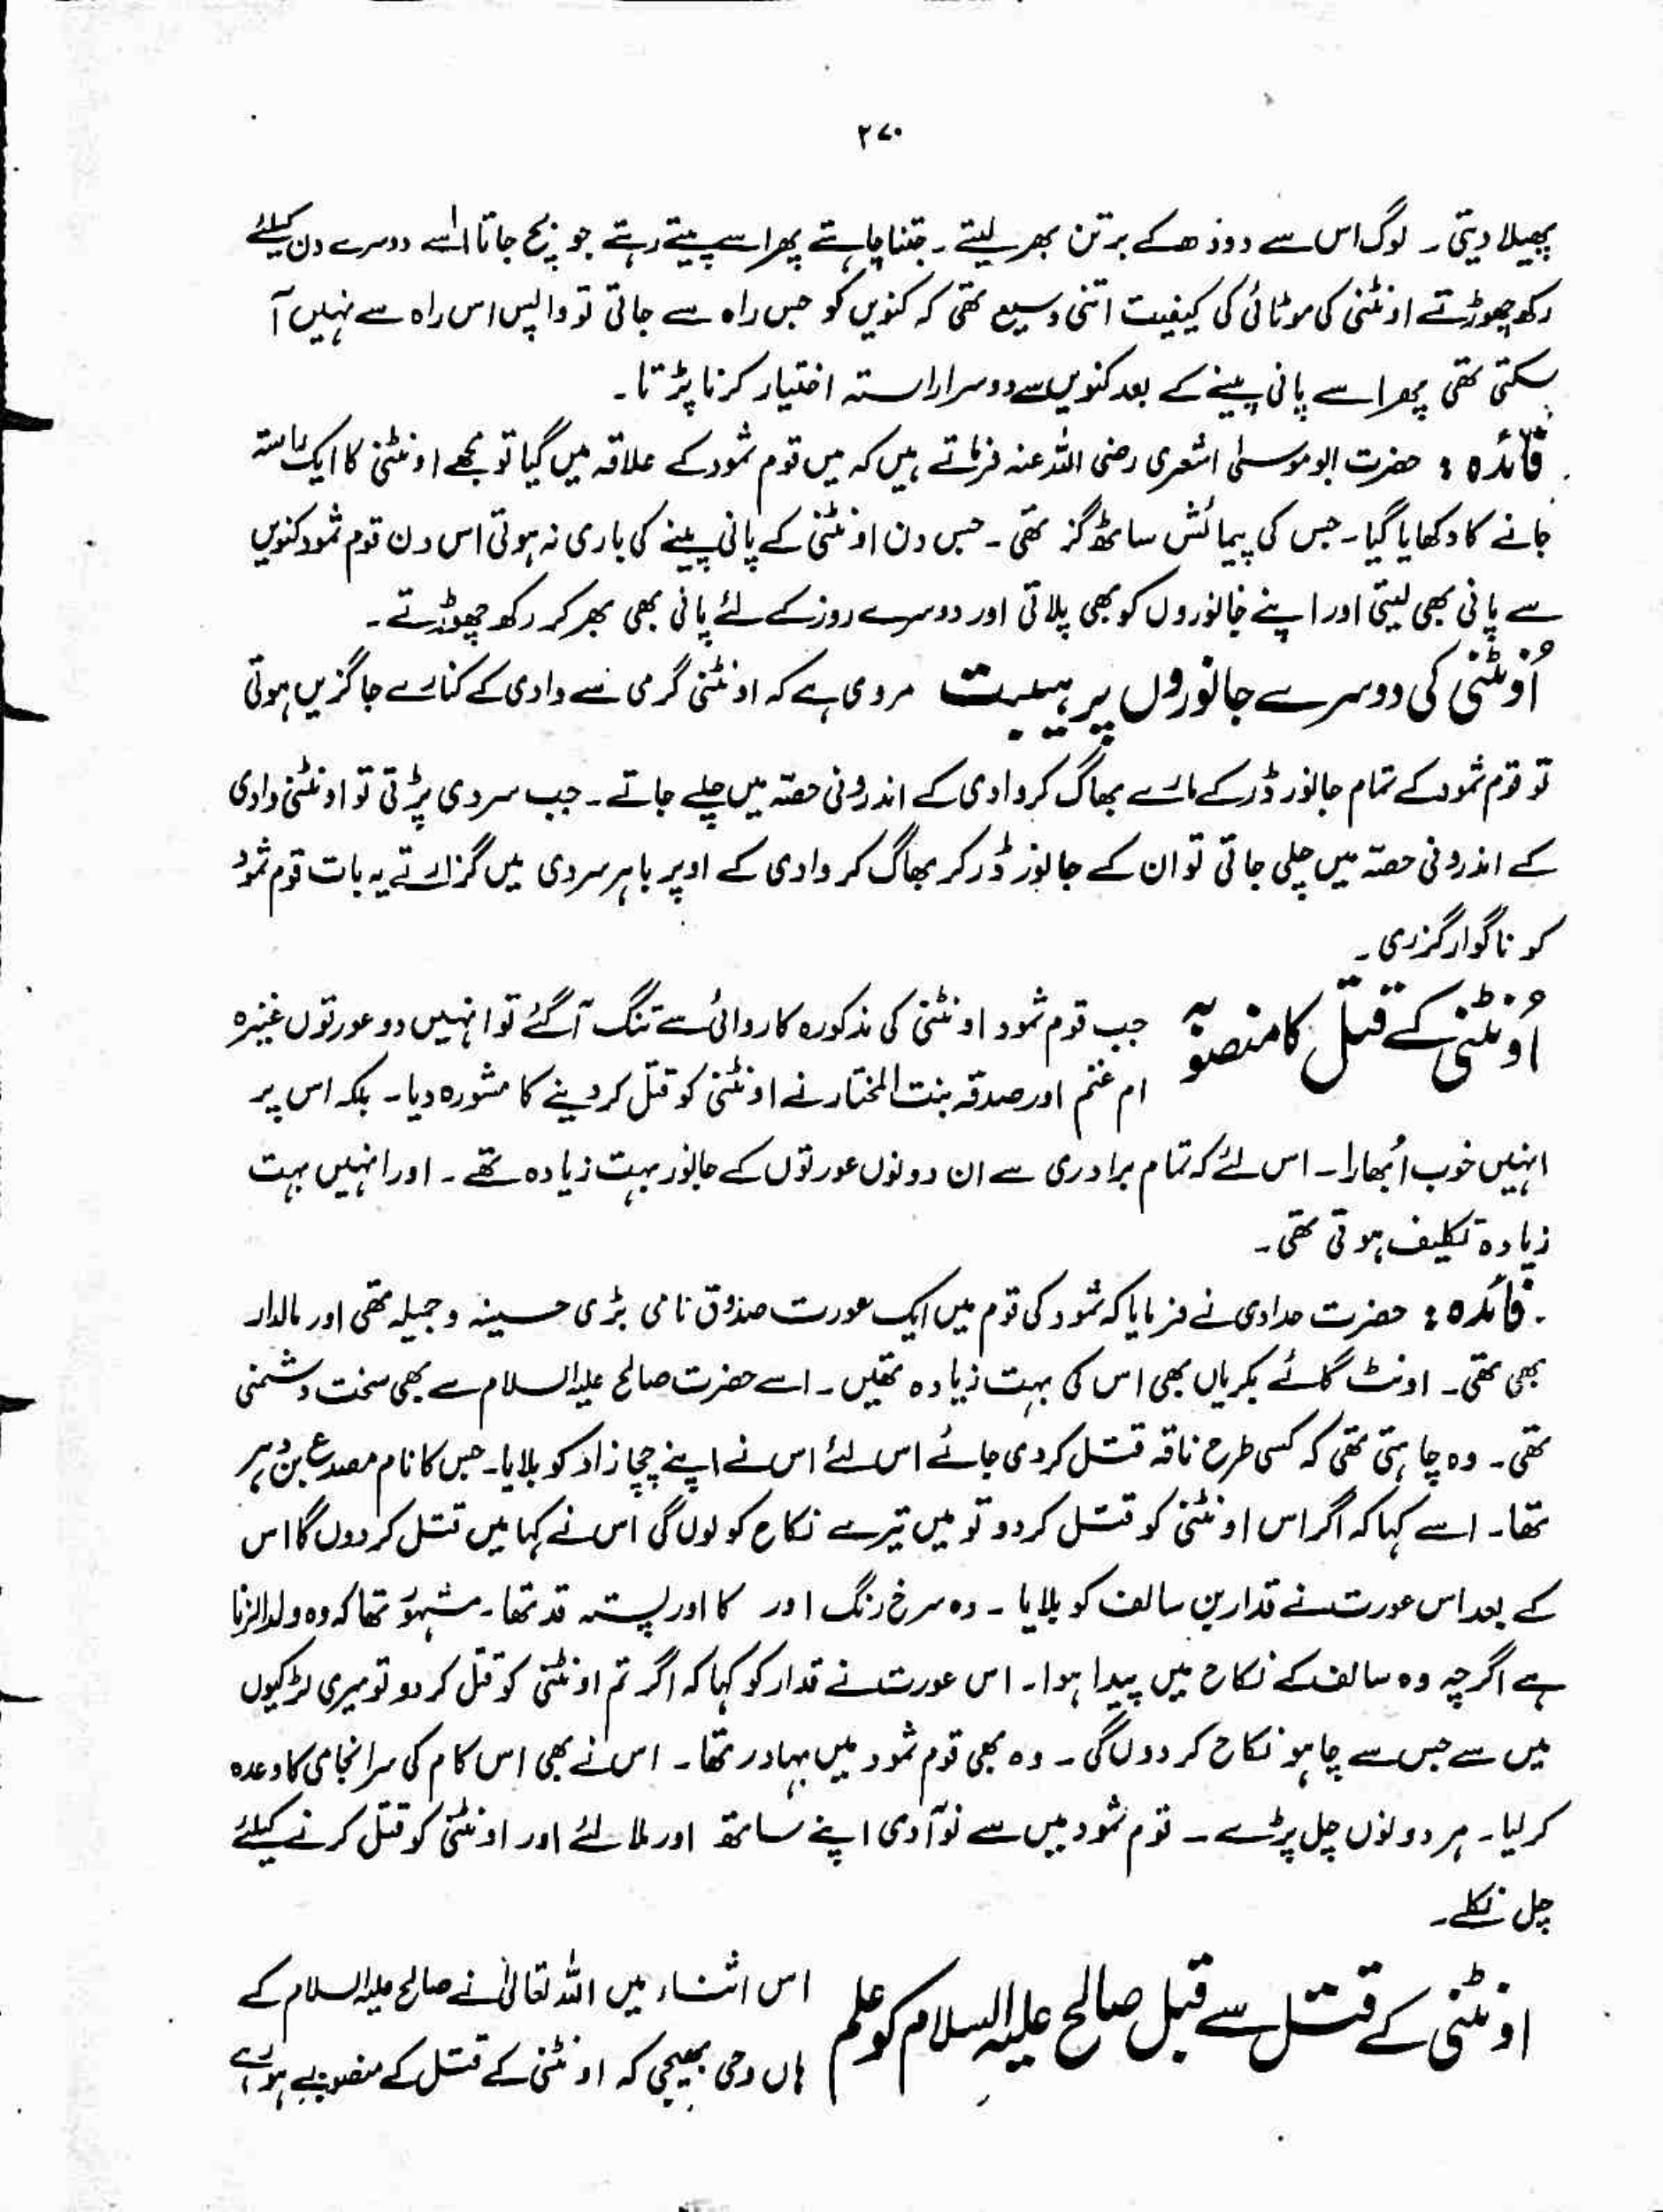 ۲۷۰
پھیلا دیتی ۔ لوگ اس سے دودھ کے برتن بھر لیتے ۔ جتنا چاہتے پھر اسے پیتے رہتے جو بچ جاتا اُسے دوسرے دن کیلئے
رکھ چھوڑتے اونٹنی کی موٹائی کی کیفیت اتنی وسیع تھی کہ کنویں کو جس راہ سے جاتی تو واپس اس راہ سے نہیں آ
سکتی تھی پھر اسے پانی پینے کے بعد کنویں سے دوسرا راستہ اختیار کرنا پڑتا۔
فائدہ : حضرت ابو موسیٰ اشعری رضی اللہ عنہ فرماتے ہیں کہ میں قوم ثمود کے علاقہ میں گیا تو مجھے اونٹنی کا ایک راستہ
جانے کا دکھایا گیا۔ جس کی پیمائش ساٹھ گز تھی ۔ جس دن اونٹنی کے پانی پینے کی باری نہ ہوتی اس دن قوم ثمود کنویں
سے پانی بھی لیتی اور اپنے جانوروں کو بھی پلاتی اور دوسرے روز کے لئے پانی بھی بھر کر رکھ چھوڑتے ۔
اُونٹنی کی دوسرے جانوروں پر ہیبت مروی ہے کہ اونٹنی گرمی سے وادی کے کنارے جاگزیں ہوتی
تو قوم ثمود کے تمام جانور ڈر کے مارے بھاگ کر وادی کے اندرونی حصّہ میں چلے جاتے ۔ جب سردی پڑتی تو اونٹنی وادی
کے اندرونی حصّہ میں چلی جاتی تو ان کے جانور ڈر کر بھاگ کر وادی کے اوپر باہر سردی میں گزارتے یہ بات قوم ثمود
کو ناگوار گزری ۔
اُونٹنی کے قتل کا منصوبہ جب قوم ثمود اونٹنی کی مذکورہ کاروائی سے تنگ آ گئے تو انہیں دو عورتوں غنیزہ
ام غنم اور صدقہ بنت المختار نے اونٹنی کو قتل کر دینے کا مشورہ دیا۔ بلکہ اس پر
انہیں خوب اُبھارا۔ اس لئے کہ تمام برادری سے ان دونوں عورتوں کے جانور بہت زیادہ تھے ۔ اور انہیں بہت
زیادہ تکلیف ہوتی تھی ۔
فائدہ : حضرت حدادی نے فرمایا کہ ثمود کی قوم میں ایک عورت صدوق نامی بڑی حسینہ و جمیلہ تھی اور مالدار
بھی تھی۔ اونٹ گائے بکریاں بھی اس کی بہت زیادہ تھیں ۔ اسے حضرت صالح علیہ السلام سے بھی سخت دشمنی
تھی۔ وہ چاہتی تھی کہ کسی طرح ناقہ قتل کر دی جائے اس لئے اس نے اپنے چچا زاد کو بلایا۔ جس کا نام مصدع بن دہر
تھا۔ اسے کہا کہ اگر اس اونٹنی کو قتل کر دو تو میں تیرے نکاح کو لوں گی اس نے کہا میں قتل کر دوں گا اس
کے بعد اس عورت نے قدار بن سالف کو بلایا ۔ وہ سرخ رنگ اور کا اور پستہ قد تھا ۔ مشہور تھا کہ وہ ولد الزنا
ہے اگرچہ وہ سالف کے نکاح میں پیدا ہوا ۔ اس عورت نے قدار کو کہا کہ اگر تم اونٹنی کو قتل کر دو تو میری لڑکیوں
میں سے جس سے چاہو نکاح کر دوں گی ۔ وہ بھی قوم ثمود میں بہادر تھا ۔ اس نے بھی اس کام کی سرانجامی کا وعدہ
کر لیا۔ ہر دونوں چل پڑے ۔ قوم ثمود میں سے نو آدمی اپنے ساتھ اور ملا لئے اور اونٹنی کو قتل کرنے کیلئے
چل نکلے ۔
اونٹنی کے قتل سے قبل صالح علیہ السلام کو علم اس اثناء میں اللہ تعالیٰ نے صالح علیہ السلام کے
ہاں وحی بھیجی کہ اونٹنی کے قتل کے منصوبے ہو رہے